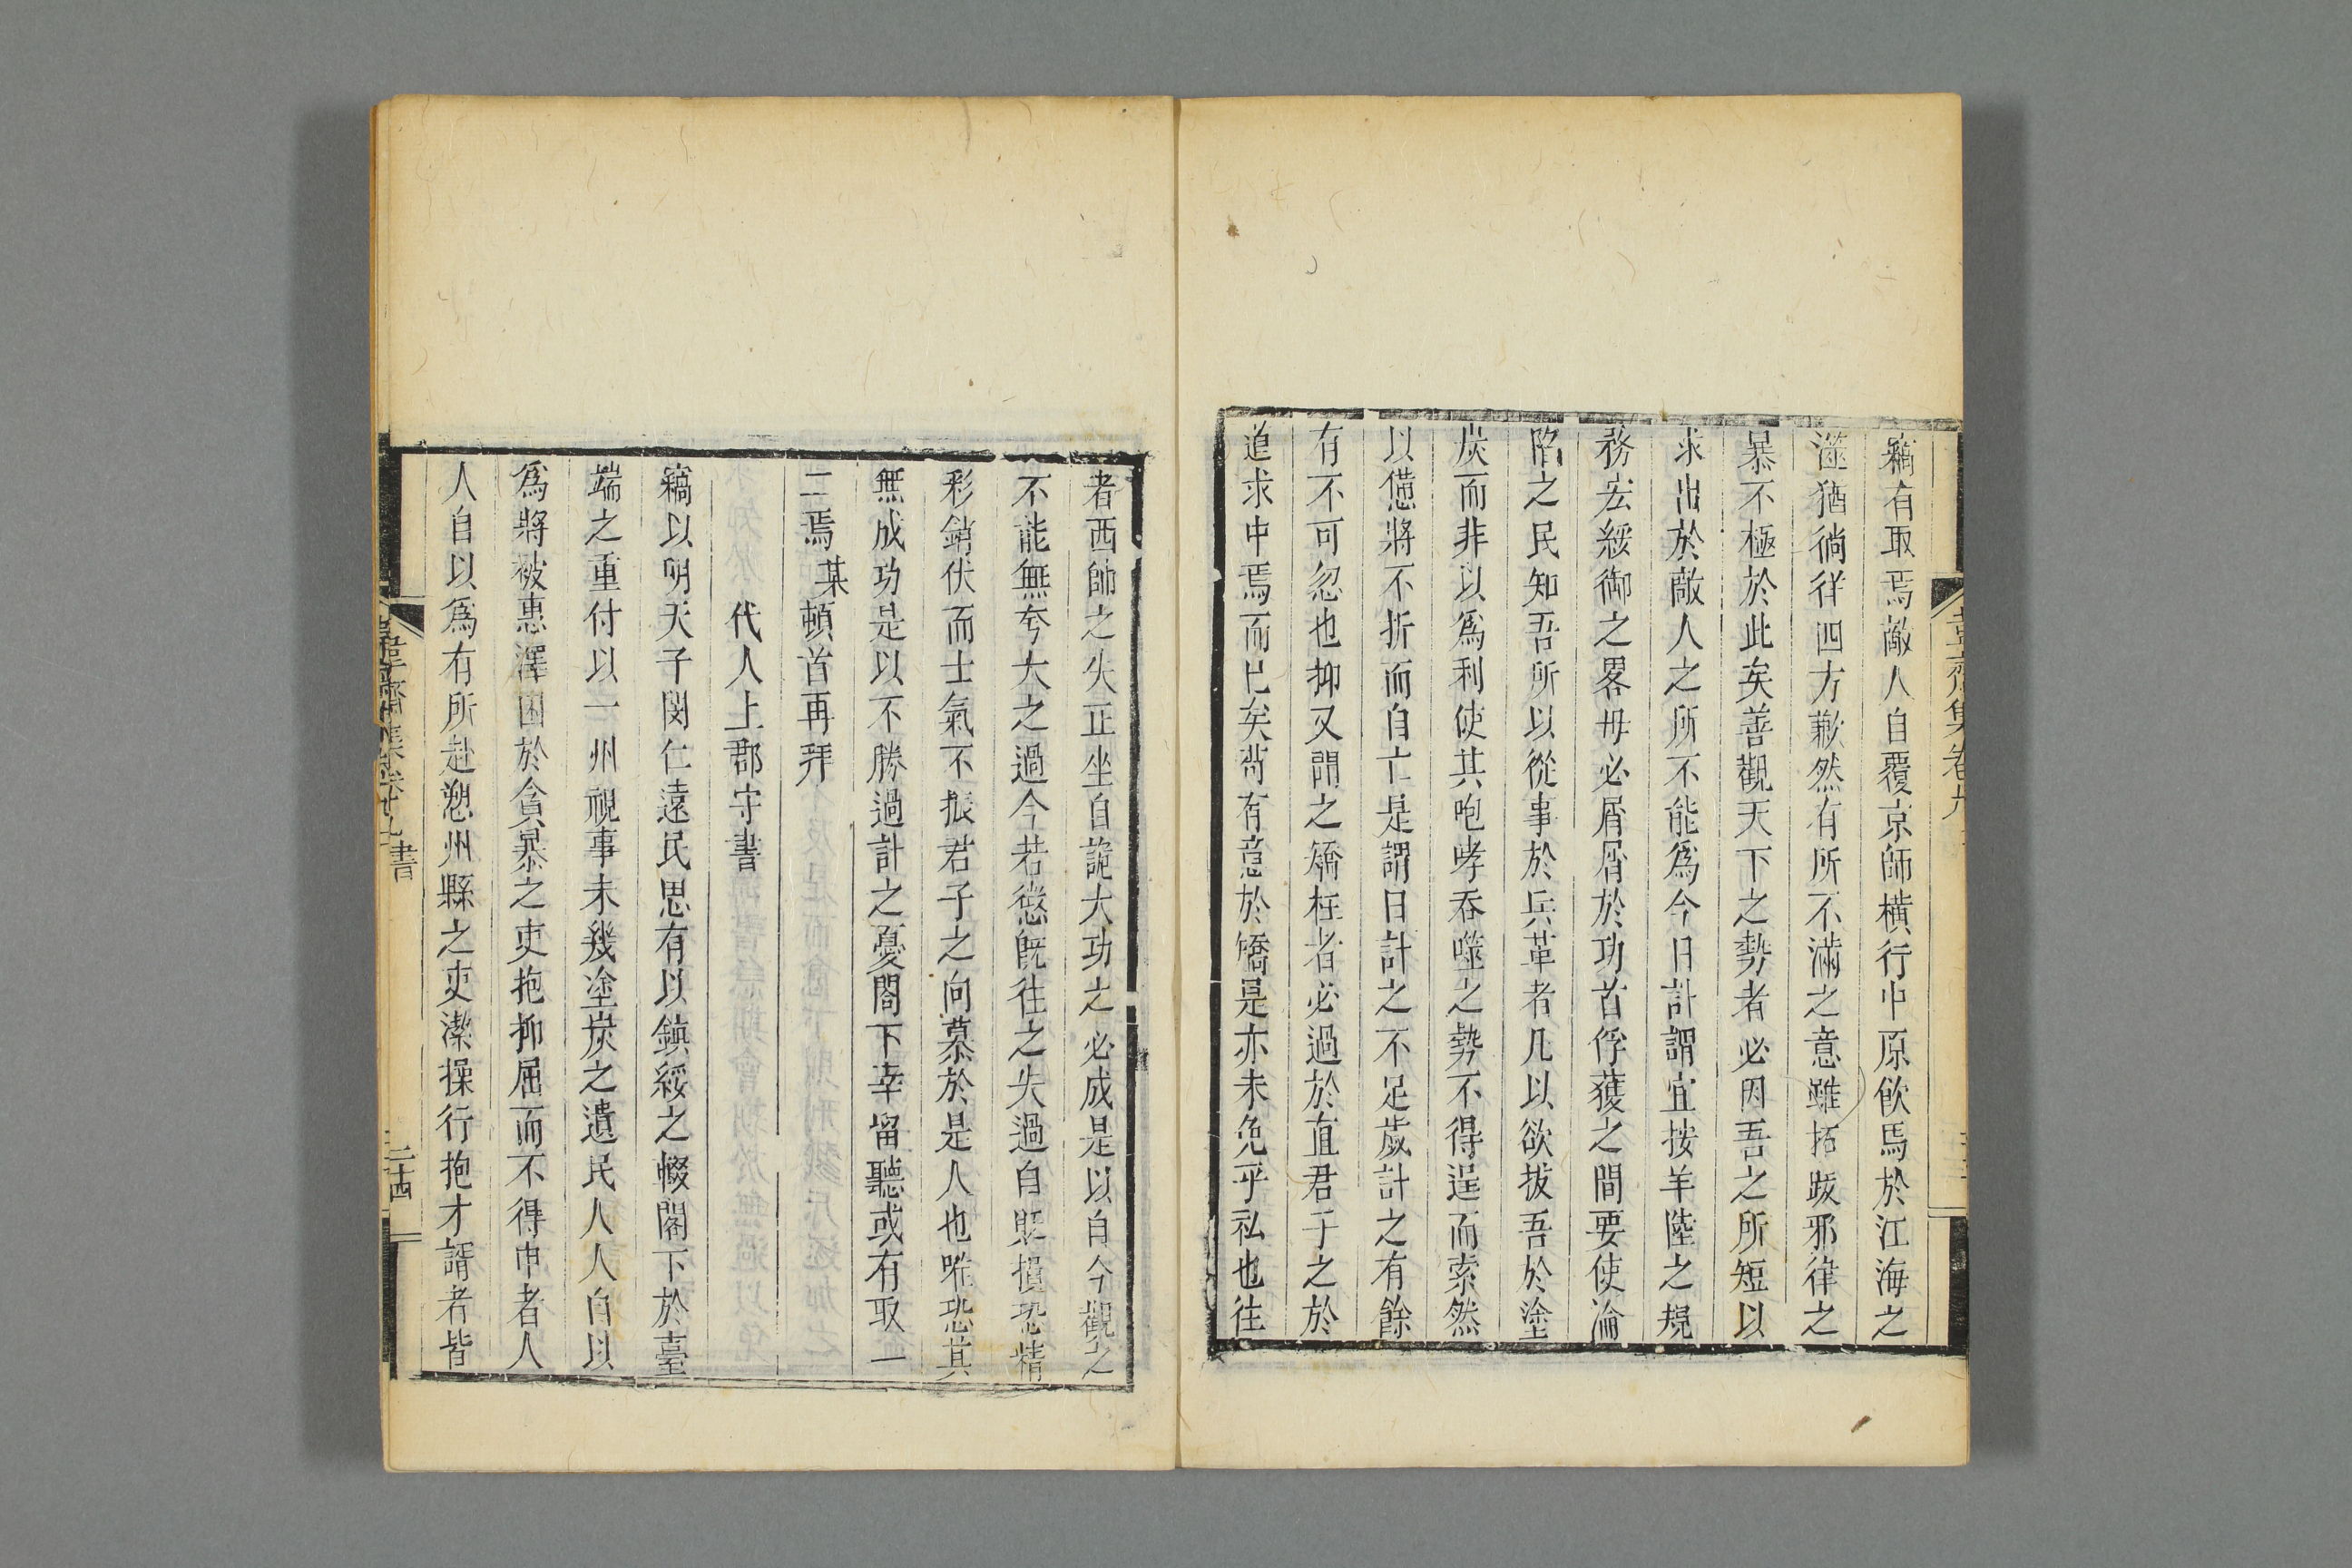 竊有取焉敵人自覆京師橫行中原飮馬於江海之
澨猶徜徉四方歉然有所不滿之意雖拓跋邪律之
暴不極於此矣善觀天下之勢者必因吾之所短以
求出於敵人之所不能爲今日計謂宜按羊陸之規
務宏綏御之畧毋必屑屑於功首俘獲之間要使淪
陷之民知吾所以從事於兵革者凡以欲拔吾於塗
炭而非以爲利使其咆哮吞噬之勢不得逞而索然
以憊將不折而自亡是謂日計之不足歲計之有餘
有不可忽也抑又聞之矯枉者必過於直君子之於
道求中焉而已矣苟有意於矯是亦未免乎私也往
者西帥之失正坐自詭大功之必成是以自今觀之
不能無夸大之過今若懲旣往之失過自貶損恐精
彩銷伏而士氣不振君子之向慕於是人也唯恐其
無成功是以不勝過計之憂閤下幸留聽或有取一
二焉某頓首再拜
代人上郡守書
竊以明天子閔仁遠民思有以鎮綏之輟閤下於臺
端之重付以一州視事未幾塗炭之遺民人人自以
爲將被惠澤困於貪暴之吏抱抑屈而不得申者人
人自以爲有所赴愬州縣之吏潔操行抱才諝者皆
韋齋集卷十九 書
二十四